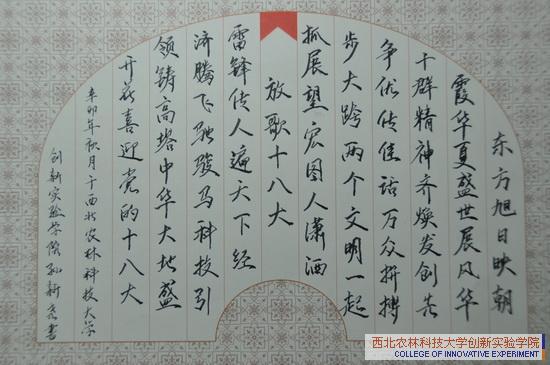 东方旭日映朝
霞华夏盛世展风华
干群精神齐焕发创先
争优传佳话万众拼搏
步大跨两个文明一起
抓展望宏图人潇洒
放歌十八大
雷锋传人遍天下经
济腾飞驰骏马科技引
领铸高塔中华大地盛
开花喜迎党的十八大
辛卯年秋月于西北农林科技大学
创新实验学院孙新书
西北农林科技大学创新实验学院
COLLEGE OF INNOVATIVE EXPERIMENT